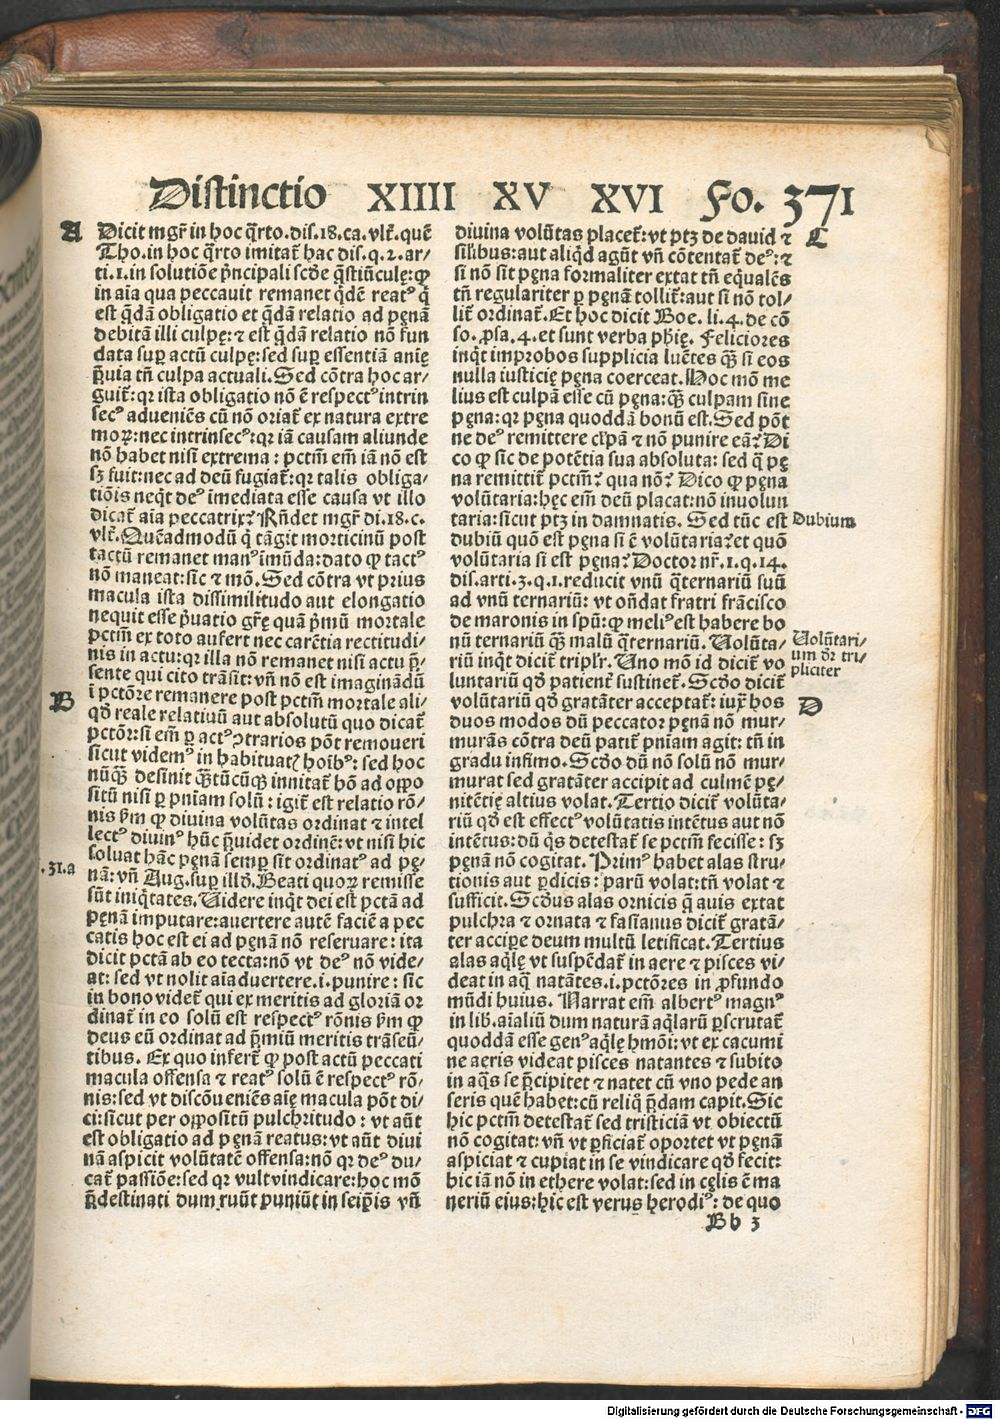 Distinctio XIIII XV XVI Fo. 371
A
Dicit mgr̄ in hoc q̄rto.dis.18.ca.vlt̄.quē
Tho.in hoc q̄rto imitat̄ hac dis.q.2.ar-
ti.1.in solutiōe p̄ncipali scd̄e q̄stiūculę:ꝙ
in aīa qua peccavit remanet qd̄ē reatꝰ q̄
est qd̄ā obligatio et qd̄ā relatio ad pęnā
debitā illi culpę:⁊ est qd̄ā relatio nō fun
data suꝑ actū culpę:sed suꝑ essentiā anię
p̄via tn̄ culpa actuali.Sed cōtra hoc ar-
guit̄:qꝛ ista obligatio nō ē respectꝰ intrin
secꝰ adueniēs cū nō oriat̄ ex natura extre
moꝝ:nec intrinsecꝰ:qꝛ iā causam aliunde
nō habet nisi extrema: pctm̄ em̄ iā nō est
sꝫ fuit:nec ad deū fugiat̄:qꝛ talis obliga-
tiōis neqt̄ deꝰ imediata esse causa vt illo
dicat̄ aīa peccatrix? Rn̄det mgr̄ di.18.c.
vlt̄.Quēadmodū q̄ tāgit morticinū post
tactū remanet manꝰ imūda:dato ꝙ tactꝰ
nō maneat:sic ⁊ mō.Sed cōtra vt prius
macula ista dissimilitudo aut elongatio
nequit esse p̄uatio gr̄ę quā p̄mū mortale
pctm̄ ex toto aufert nec carētia rectitudi-
nis in actu:qꝛ illa nō remanet nisi actu p̄-
sente qui cito trāsit:vn̄ nō est imaginādū
B
ī pctōre remanere post pctm̄ mortale ali-
qd̄ reale relativū aut absolutū quo dicat̄
pctōr:si em̄ ꝑ actꝰ ꝯtrarios pōt removeri
sicut videmꝰ in habituatꝭ hoībꝰ: sed hoc
nūqꝫ̄ desinit qꝫ̄tūcūqꝫ innitat̄ hō ad oppo
sitū nisi ꝑ pniam solū: igit̄ est relatio rō-
nis ꝟm ꝙ divina volūtas ordinat ⁊ intel
lectꝰ divinꝰ hūc p̄videt ordinē:vt nisi hic
solvat hāc pęnā semꝑ sit ordinatꝰ ad pę-
.31.a
nā:vn̄ Aug.suꝑ illd̄.Beati quoꝝ remisse
sūt iniqt̄ates.Videre inqt̄ dei est pctā ad
pęnā imputare:avertere autē faciē a pec
catis hoc est ei ad pęnā nō reservare: ita
dicit pctā ab eo tecta:nō vt deꝰ nō vide-
at: sed vt nolit aīadvertere.i.punire: sic
in bono videt̄ qui ex meritis ad gloriā or
dinat̄ in eo solū est respectꝰ rōnis ꝟm ꝙ
deus eū ordinat ad p̄miū meritis trāseū-
tibus. Ex quo infert̄ ꝙ post actū peccati
macula offensa ⁊ reatꝰ solū ē respectꝰ rō-
nis:sed vt discōveniēs aię macula pōt di-
ci:sicut per oppositū pulchritudo: vt aūt
est obligatio ad pęnā reatus:vt aūt divi
nā aspicit volūtatē offensa:nō qꝛ deꝰ du-
cat̄ passiōe:sed qꝛ vult vindicare:hoc mō
p̄destinati dum ruūt puniūt in seip̄is vn̄
C
divina volūtas placet̄:vt ptꝫ de david ⁊
sil̄ibus:aut aliqd̄ agūt vn̄ cōtentat̄ deꝰ:⁊
si nō sit pęna formaliter extat tn̄ eq̄valēs
tn̄ regulariter ꝑ pęnā tollit̄:aut si nō tol-
lit̄ ordinat̄.Et hoc dicit Boe. li.4.de cō
so.ꝓsa.4.et sunt verba ph̄ię. Feliciores
inqt̄ improbos supplicia luētes qꝫ̄ si eos
nulla iusticię pęna coerceat.Hoc mō me
lius est culpā esse cū pęna:qꝫ̄ culpam sine
pęna:qꝛ pęna quoddā bonū est.Sed pōt
ne deꝰ remittere cl̄pā ⁊ nō punire eā?Di
co ꝙ sic de potētia sua absoluta: sed q̄ pę
na remittit̄ pctm̄? qua nō? Dico ꝙ pęna
voluntaria:hęc em̄ deū placat:nō involun
taria:sicut ptꝫ in damnatis. Sed tūc est
Dubium
dubiū quō est pęna si ē volūtaria?et quō
volūtaria si est pęna? Doctor nr̄.1.q.14.
dis.arti.3.q.1.reducit vnū q̄ternariū suū
ad vnū ternariū: vt on̄dat fratri frācisco
de maronis in spū:ꝙ meliꝰ est habere bo
nū ternariū qꝫ̄ malū q̄ternariū. Volūta-
Volūtari-
um dr̄ tri-
pliciter
riū inqt̄ dicit̄ tripl̄r. Uno mō id dicit̄ vo
luntariū qd̄ patient̄ sustinet̄.Scd̄o dicit̄
D
volūtariū qd̄ gratāter acceptat̄: iux̄ hos
duos modos dū peccator pęnā nō mur-
murās cōtra deū patit̄ pniam agit: tn̄ in
gradu infimo.Scd̄o dū nō solū nō mur-
murat sed gratāter accipit ad culmē pę-
nitētię altius volat.Tertio dicit̄ volūta-
riū qd̄ est effectꝰ volūtatis intētus aut nō
intētus:dū q̄s detestat̄ se pctm̄ fecisse: sꝫ
pęnā nō cogitat. Primꝰ habet alas stru-
tionis aut ꝑdicis: parū volat:tn̄ volat ⁊
sufficit.Scd̄us alas ornicis q̄ avis extat
pulchra ⁊ ornata ⁊ fasianus dicit̄ gratā-
ter accipere deum multū letificat.Tertius
alas aq̄lę vt suspēdat̄ in aere ⁊ pisces vi-
deat in aq̄ natātes.i.pctōres in ꝓfundo
mūdi huius. Narrat em̄ albertꝰ magnꝰ
in lib.aīaliū dum naturā aq̄larū ꝑscrutat̄
quoddā esse genꝰ aq̄lę hmōi:vt ex cacumi
ne aeris videat pisces natantes ⁊ subito
in aq̄s se p̄cipitet ⁊ natet cū vno pede an
seris quē habet:cū reliq̄ p̄dam capit.Sic
hic pctm̄ detestat̄ sed tristiciā vt obiectū
nō cogitat:vn̄ vt ꝑficiat̄ oportet vt pęnā
aspiciat ⁊ cupiat in se vindicare qd̄ fecit:
hic iā nō in ethere volat:sed in cęlis ē ma
neriū eius:hic est verus herodiꝰ: de quo
Bb 3
Digitalisierung gefördert durch die Deutsche Forschungsgemeinschaft - DFG